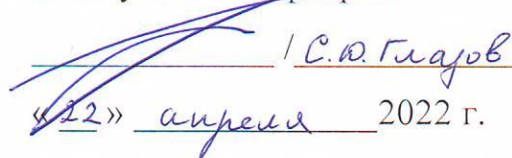 / С.Ю. Глазов
«22» апреля 2022 г.